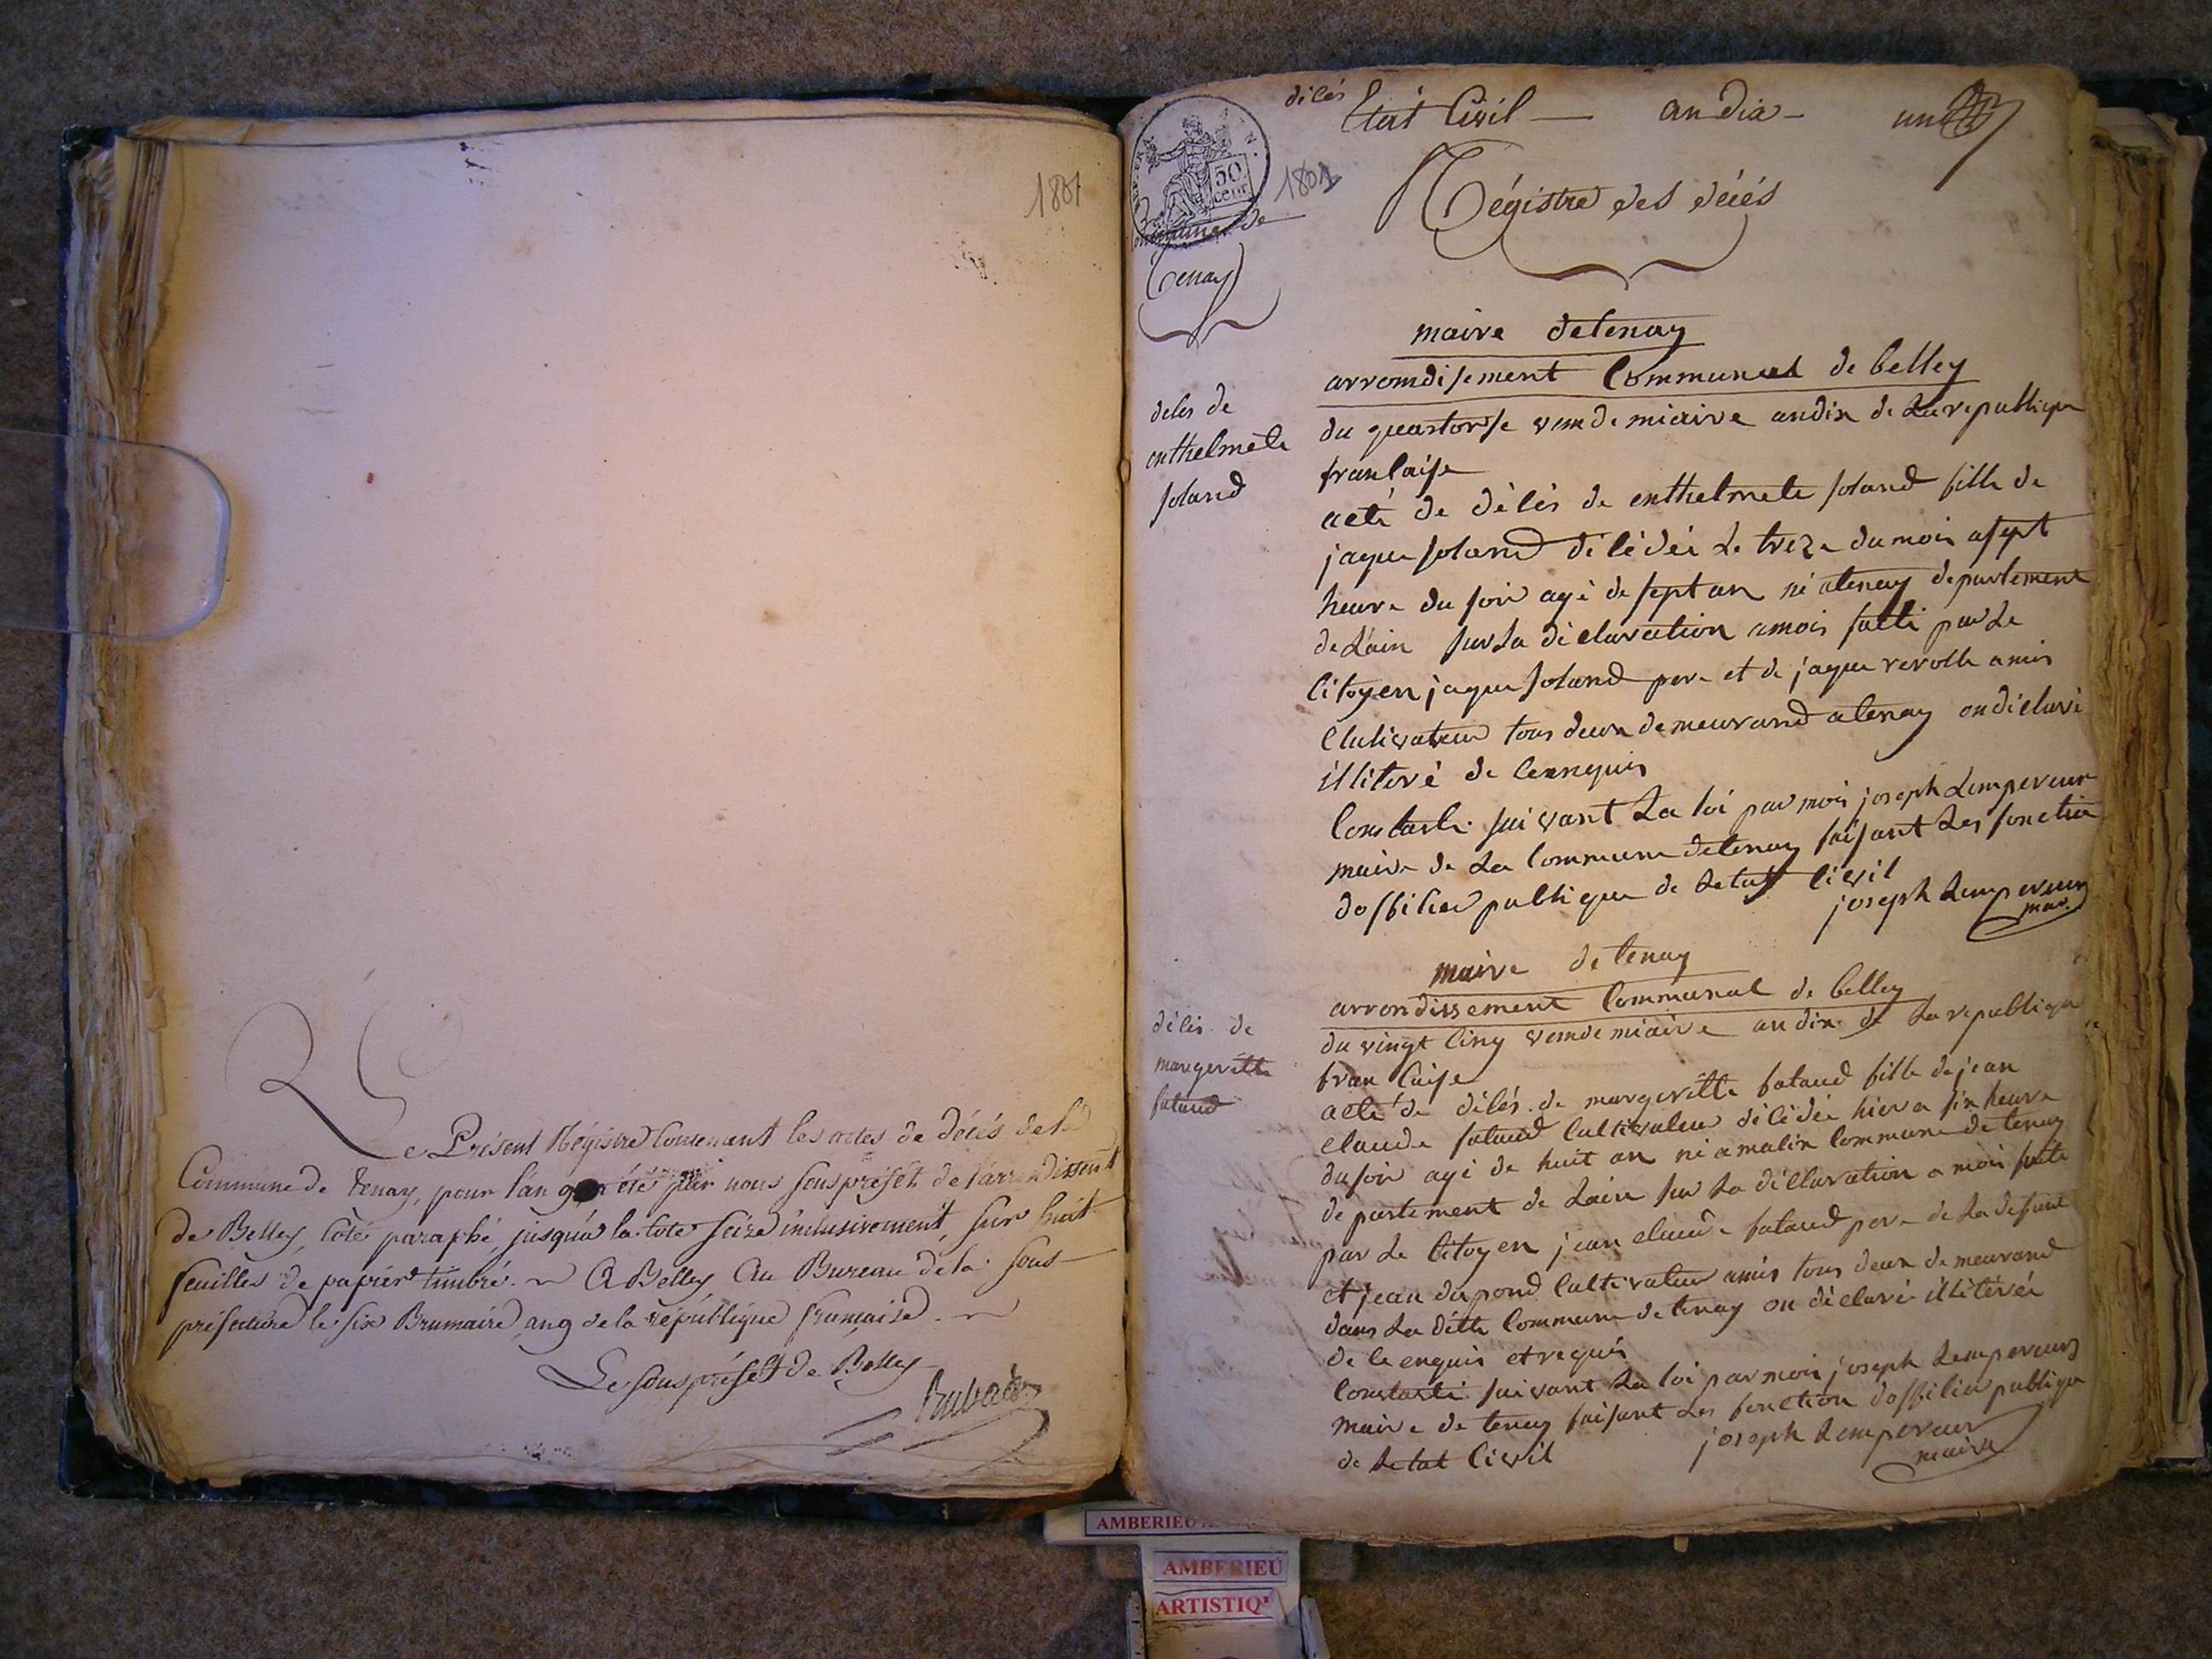 1801
Le Présent Régistre Contenant les actes de décés de la
Commune de tenay, pour l'an 9 été par nous souspréfet de l'arrondissent
de Belley, côté paraphé, jusqu'à la cote seize inclusivement, sur huit
feuilles de papier timbré. A Belley Au Bureau de la Sous-
préfecture le six Brumaire an 9 de la république francaise.
Le souspréfet de Belley
décés Etat Civil — an dix — un
50 cent
1801
Régistre des décés
Commune de
Tenay
maire detenay
arromdisement Communal de belley
deces de
enthelmete
soland
du quastorse vemdemiaire andix de La republique
francaise
acte de décés de enthelmete soland fille de
jaque soland décédéé Le treze du mois asept
heure du soir agé de sept an né atenay departement
de Lain sur La déclaration amois faitte par Le
Citoyen jaque soland pere et de jaque revolle amis
Cultivateur tous deux demeurand atenay on déclaré
illiteré de Cenrequis
Constaté suivant La loi par mois joseph Lempereur
maire de La Commune detenay faisant Les fonction
dofficier publique de Letat Civil
joseph Lempereur
mair
maire de tenay
arrondissement Communal de belley
décés de
margeritte
fataud
du vingt Cinq vemdemiaire an dix de La republique
francaise
acte de décés de margeritte fataud fille de jean
claude fataud Cultivateur décédée hier a six heure
du soir agé de huit an né a malix Commune de tenay
departement de Lain sur La déclaration a mois faite
par Le Citoyen jean claude fataud pere de La defunte
et jean dupond Cultivateur amis tous deux demeurand
dans La ditte Commune de tenay on déclaré illitéréé
de Ce enquis et requis
Constaté suivant La loi par mois joseph Lempereur
maire de tenay faisant Les fonction dofficier publique
de Letat Civil
joseph Lempereur
maire
AMBERIEU
AMBERIEU
ARTISTIQ